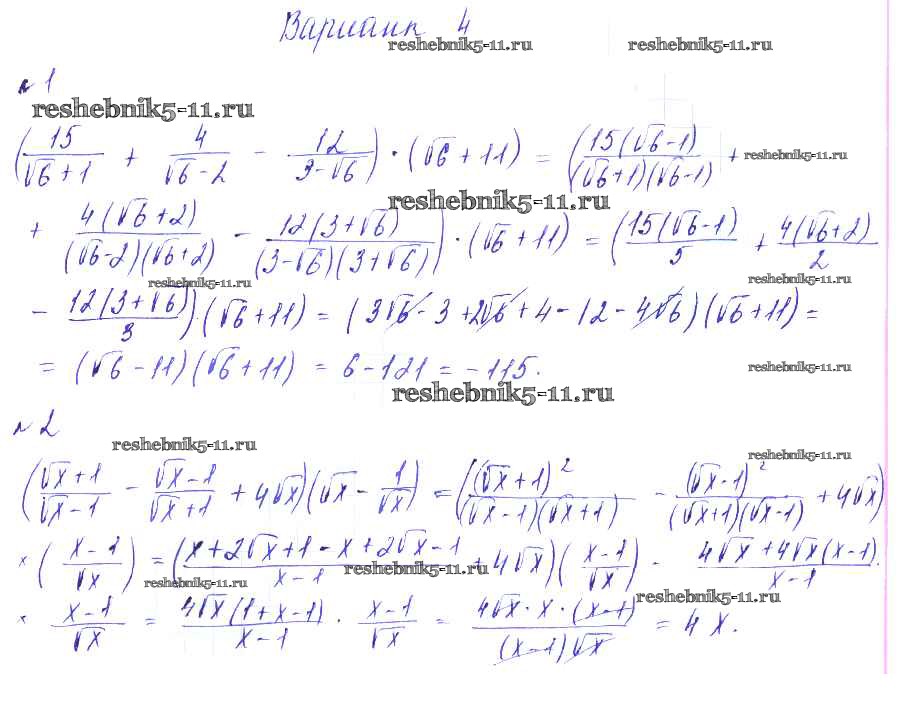 Вариант 4
reshebnik5-11.ru reshebnik5-11.ru
№1
reshebnik5-11.ru
(15/(√6+1) + 4/(√6-2) - 12/(3-√6)) · (√6+11) = (15(√6-1)/((√6+1)(√6-1)) + reshebnik5-11.ru
reshebnik5-11.ru
+ 4(√6+2)/((√6-2)(√6+2)) - 12(3+√6)/((3-√6)(3+√6))) · (√6+11) = (15(√6-1)/5 + 4(√6+2)/2
reshebnik5-11.ru reshebnik5-11.ru
- 12(3+√6)/3)(√6+11) = (3√6-3+2√6+4-12-4√6)(√6+11) =
= (√6-11)(√6+11) = 6-121 = -115. reshebnik5-11.ru
reshebnik5-11.ru
№2
reshebnik5-11.ru reshebnik5-11.ru
((√x+1)/(√x-1) - (√x-1)/(√x+1) + 4√x)(√x - 1/√x) = ((√x+1)²/((√x-1)(√x+1)) - (√x-1)²/((√x+1)(√x-1)) + 4√x)
× ((x-1)/√x) = ((x+2√x+1-x+2√x-1)/(x-1) + 4√x)((x-1)/√x) - (4√x+4√x(x-1))/(x-1) ·
reshebnik5-11.ru reshebnik5-11.ru reshebnik5-11.ru
× (x-1)/√x = 4√x(1+x-1)/(x-1) · (x-1)/√x = 4√x·x·(x-1)/((x-1)√x) = 4x.